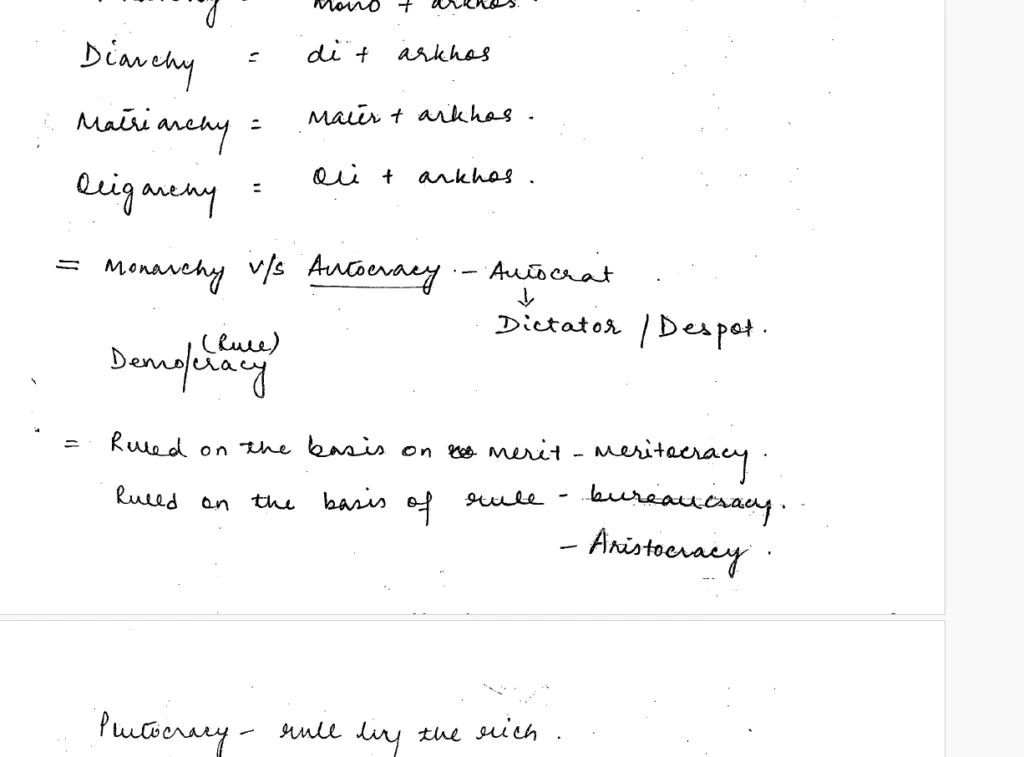 mono + arkhos.
Diarchy = di + arkhos
Matriarchy = Mater + arkhos.
Oligarchy = Oli + arkhos.
= Monarchy v/s Autocracy - Autocrat
↓
Dictator / Despot.
(Rule)
Demo/cracy
= Ruled on the basis on merit - meritocracy.
Ruled on the basis of rule - bureaucracy.
- Aristocracy.
Plutocracy - rule by the rich.